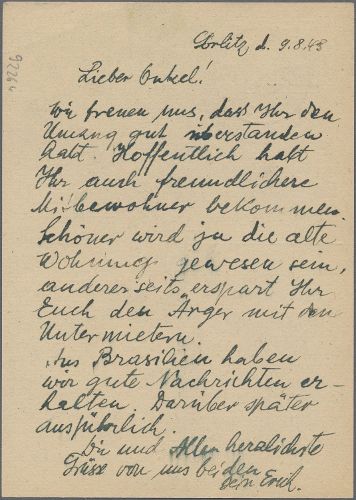 Görlitz d. 9.8.43
92264
Lieber Onkel!
Wir freuen uns, dass Ihr den
Umzug gut überstanden
habt. Hoffentlich habt
Ihr auch freundlichere
Mitbewohner bekommen.
Schöner wird ja die alte
Wohnung gewesen sein,
andererseits erspart Ihr
Euch den Ärger mit den
Untermietern.
Aus Brasilien haben
wir gute Nachrichten er-
halten. Darüber später
ausführlich.
Dir und Allen herzlichste
Grüsse von uns beiden
Dein Erich.